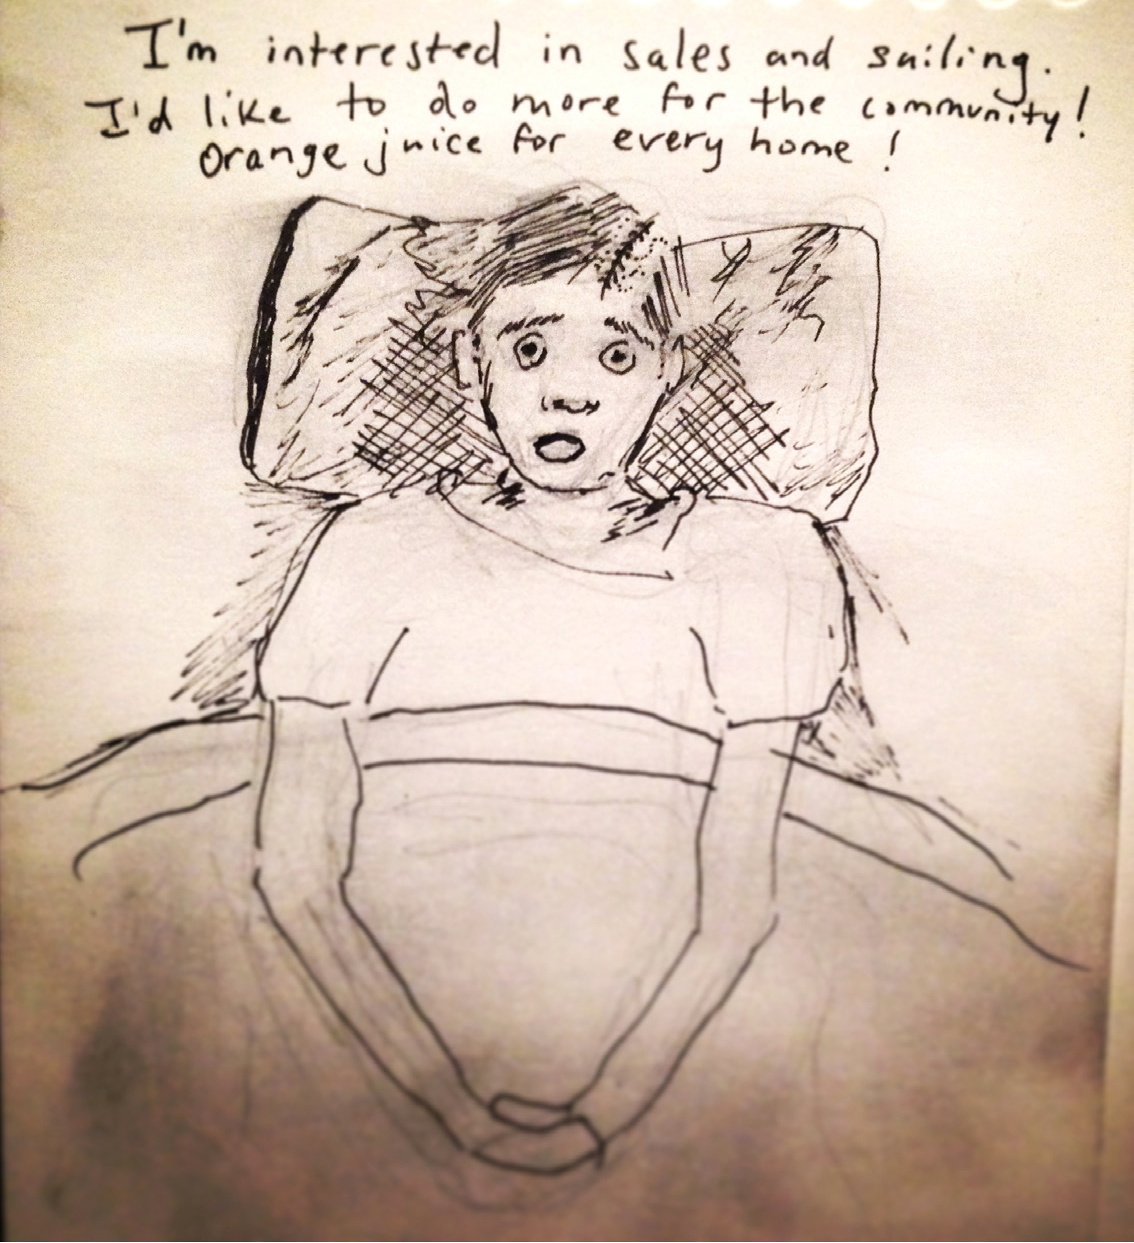 I'm interested in sales and sailing.
I'd like to do more for the community!
Orange juice for every home!